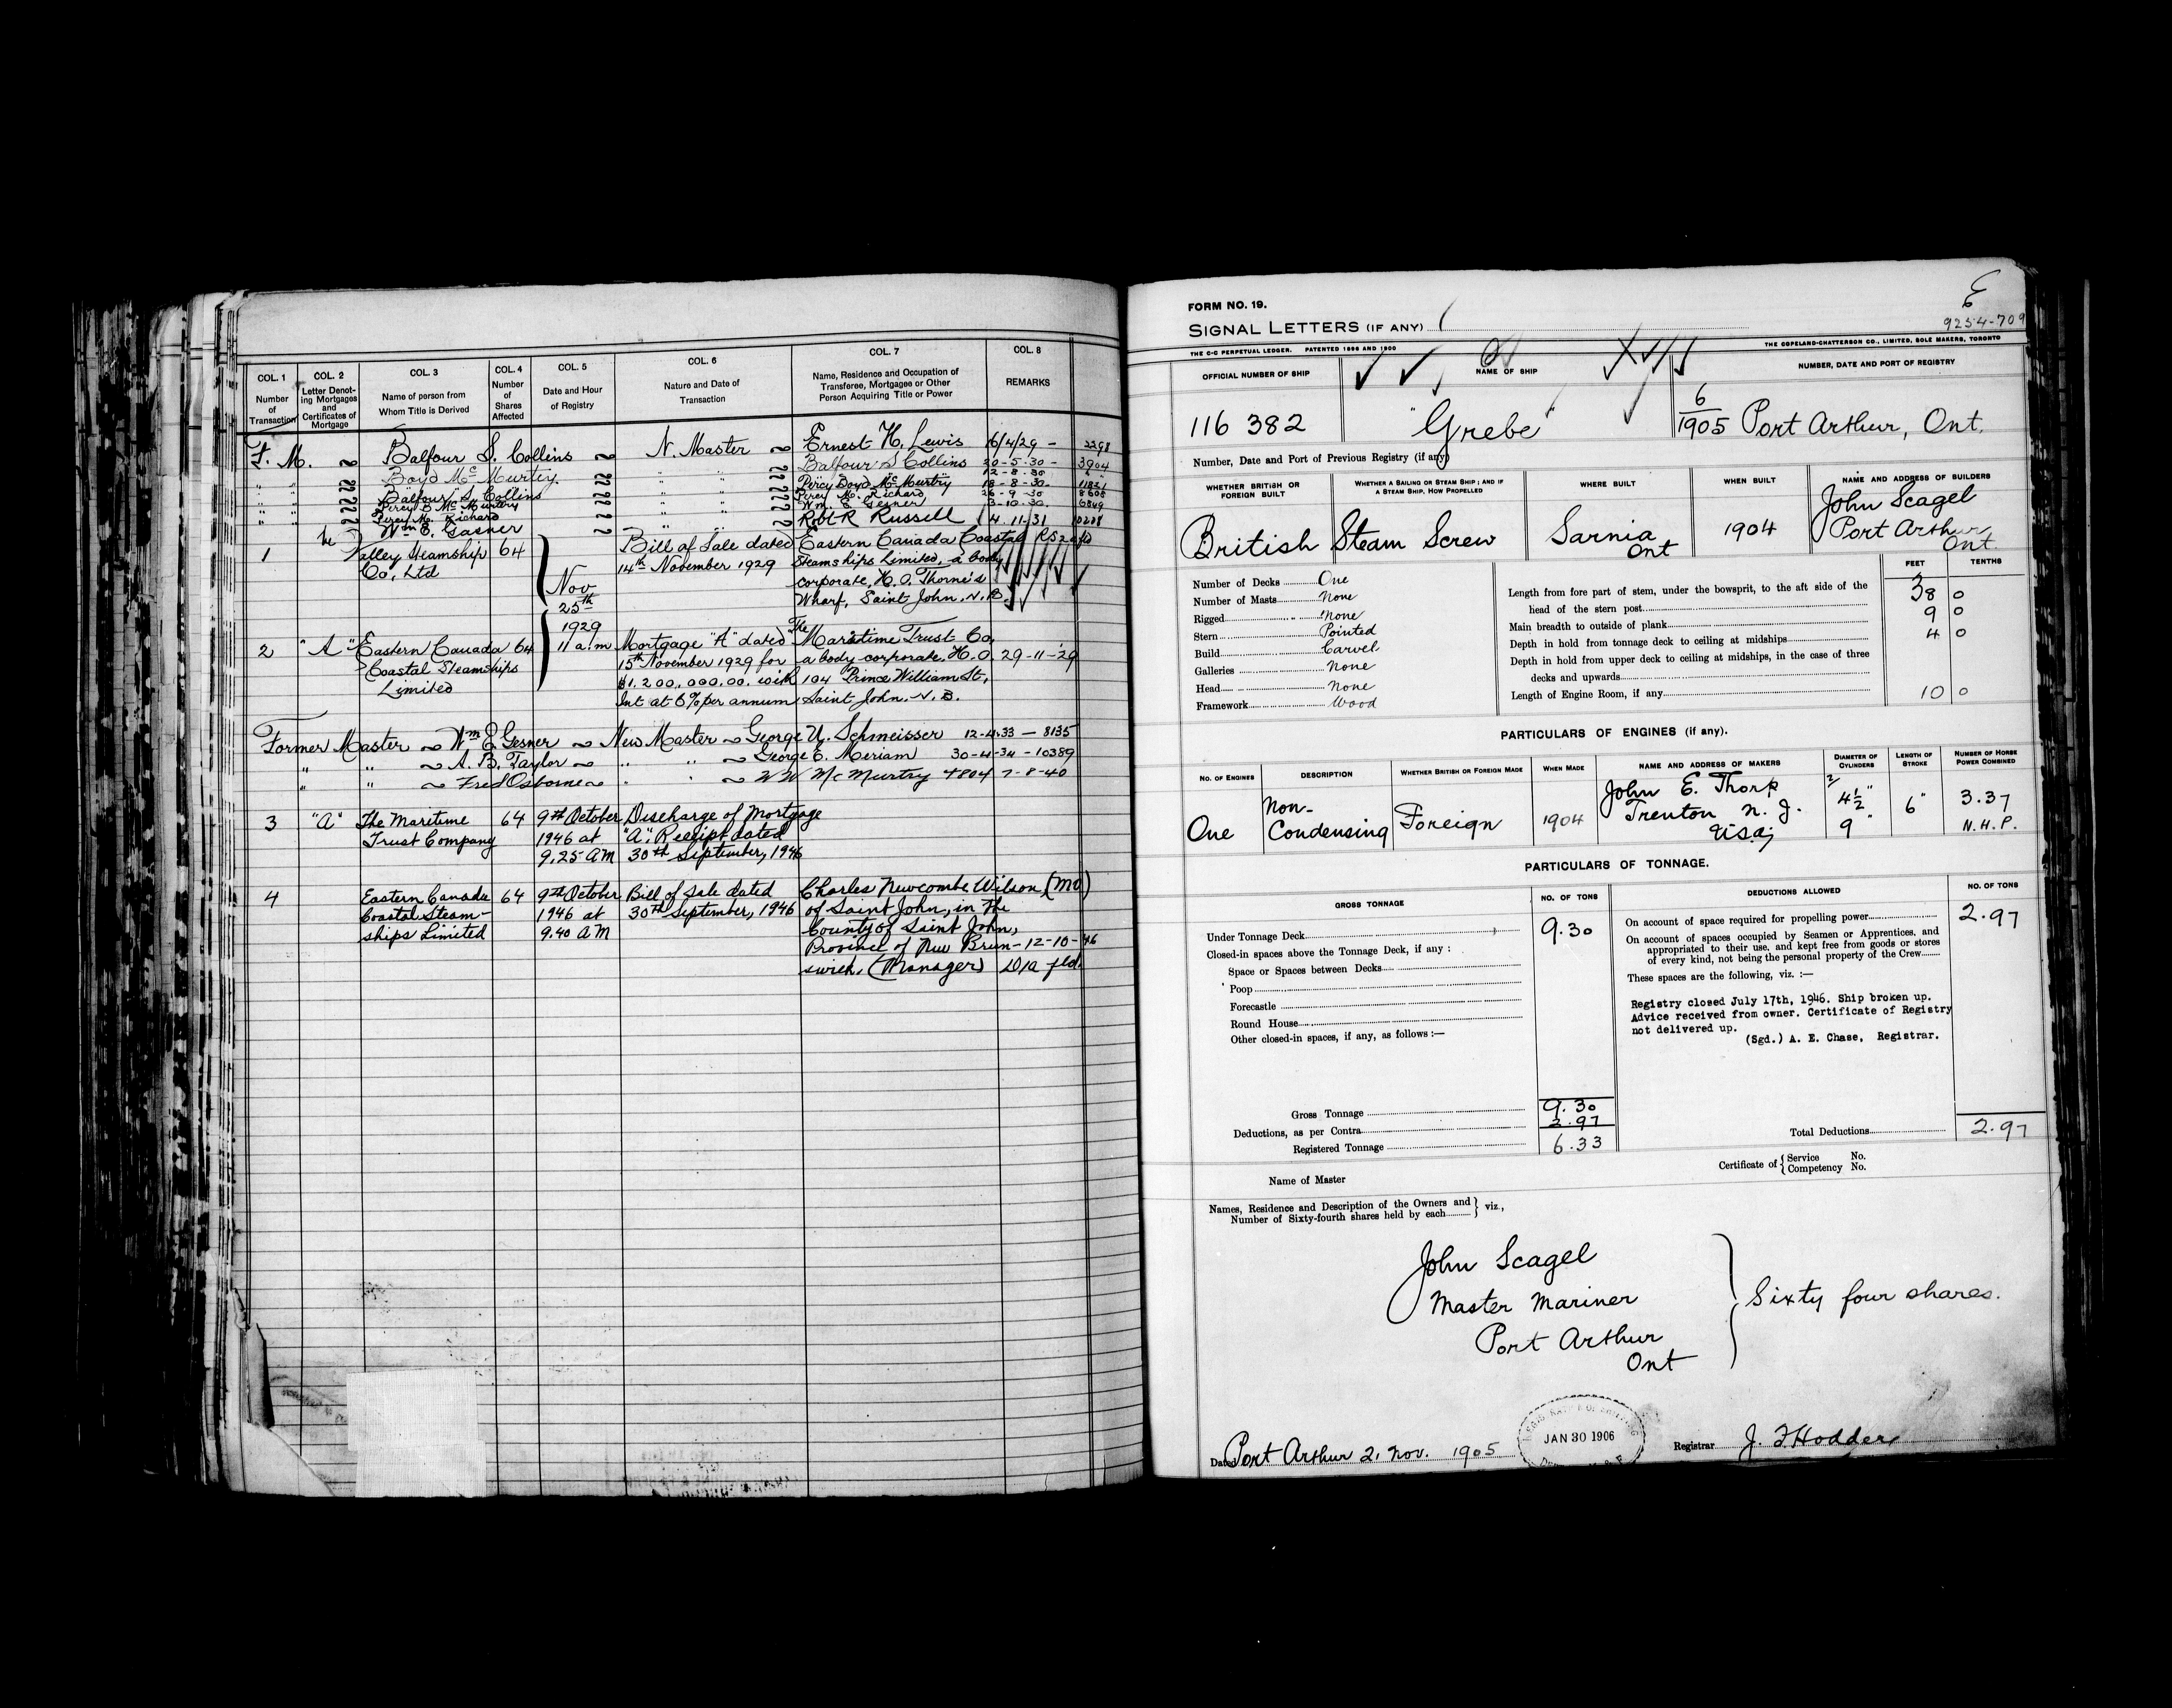 COL. 1 COL. 2 COL. 3 COL. 4 COL. 5 COL. 6 COL. 7 COL. 8
Number of Transaction
Letter Denoting Mortgages and Certificates of Mortgage
Name of person from Whom Title is Derived
Number of Shares Affected
Date and Hour of Registry
Nature and Date of Transaction
Name, Residence and Occupation of Transferee, Mortgagee or Other Person Acquiring Title or Power
REMARKS
F. M. Balfour S. Collins N. Master Ernest H. Lewis 16/4/29 - 2298
" " Boyd McMurtry " " Balfour S Collins 20-5-30 - 3904
" " Balfour S. Collins " " Percy Boyd McMurtry 18-8-30- 11821
" " Percy B McMurtry " " Percy M. Richard 26-9-30 8608
" " Percy M. Richard " " Wm. E. Gesner 3-10-30. 6849
" " Wm E. Gasner " " Robt R Russell 4-11-31 10208
1 The Valley Steamship 64 Bill of Sale dated Eastern Canada Coastal
Co, Ltd 14th November 1929 Steamships Limited, a body
Nov corporate, H.O. Thorne's
25th Wharf, Saint John. N. B.
1929 The
2 "A" Eastern Canada 64 11 a.m Mortgage "A" dated Maritime Trust Co,
Coastal Steamships 15th November 1929 for a body corporate, H.O. 29-11-29
Limited $1,200,000.00. with 104 Prince William St,
Int at 6% per annum Saint John. N. B.
Former Master Wm E. Gesner New Master George U. Schmeisser 12-4-33 - 8135
" " A. B. Taylor " " George E. Meriam 30-4-34 - 10389
" " Fred Osborne " " W W McMurtry 4804 7-8-40
3 "A" The Maritime 64 9th October Discharge of Mortgage
Trust Company 1946 at "A", Receipt dated
9.25 AM 30th September, 1946
4 Eastern Canada 64 9th October Bill of Sale dated Charles Newcombe Wilson (MO)
Coastal Steam- 1946 at 30th September, 1946 of Saint John, in the
ships Limited 9.40 AM County of Saint John,
Province of New Brun- 12-10-46
swick, (Manager)
FORM NO. 19.
SIGNAL LETTERS (IF ANY)
9254-709
THE C-C PERPETUAL LEDGER. PATENTED 1896 AND 1900 THE COPELAND-CHATTERSON CO., LIMITED, SOLE MAKERS, TORONTO
OFFICIAL NUMBER OF SHIP NAME OF SHIP NUMBER, DATE AND PORT OF REGISTRY
116 382 "Grebe" 6/1905 Port Arthur, Ont.
Number, Date and Port of Previous Registry (if any)
WHETHER BRITISH OR FOREIGN BUILT
WHETHER A SAILING OR STEAM SHIP; AND IF A STEAM SHIP, HOW PROPELLED
WHERE BUILT WHEN BUILT NAME AND ADDRESS OF BUILDERS
British Steam Screw Sarnia Ont 1904 John Scagel Port Arthur Ont.
FEET TENTHS
Number of Decks One
Number of Masts None
Rigged None
Stern Pointed
Build Carvel
Galleries None
Head None
Framework Wood
Length from fore part of stem, under the bowsprit, to the aft side of the
head of the stern post 38 0
Main breadth to outside of plank 9 0
Depth in hold from tonnage deck to ceiling at midships 4 0
Depth in hold from upper deck to ceiling at midships, in the case of three
decks and upwards
Length of Engine Room, if any 10 0
PARTICULARS OF ENGINES (if any).
NO. OF ENGINES DESCRIPTION WHETHER BRITISH OR FOREIGN MADE WHEN MADE NAME AND ADDRESS OF MAKERS DIAMETER OF CYLINDERS LENGTH OF STROKE NUMBER OF HORSE POWER COMBINED
One Non-Condensing Foreign 1904 John E. Thorp Trenton N. J. U.S.A. 2/ 4½" 9" 6" 3.37 N.H.P.
PARTICULARS OF TONNAGE.
GROSS TONNAGE NO. OF TONS DEDUCTIONS ALLOWED NO. OF TONS
Under Tonnage Deck 9.30
Closed-in spaces above the Tonnage Deck, if any :
Space or Spaces between Decks
Poop
Forecastle
Round House
Other closed-in spaces, if any, as follows :—
On account of space required for propelling power 2.97
On account of spaces occupied by Seamen or Apprentices, and
appropriated to their use, and kept free from goods or stores
of every kind, not being the personal property of the Crew
These spaces are the following, viz. :—
Registry closed July 17th, 1946. Ship broken up.
Advice received from owner. Certificate of Registry
not delivered up.
(Sgd.) A. E. Chase, Registrar.
Gross Tonnage 9.30
Deductions, as per Contra 2.97
Registered Tonnage 6.33
Total Deductions 2.97
Name of Master
Certificate of { Service No.
Competency No.
Names, Residence and Description of the Owners and
Number of Sixty-fourth shares held by each } viz.,
John Scagel
Master Mariner
Port Arthur
Ont
Sixty four shares.
Dated Port Arthur 2, Nov. 1905
JAN 30 1906
Registrar J. F Hodder